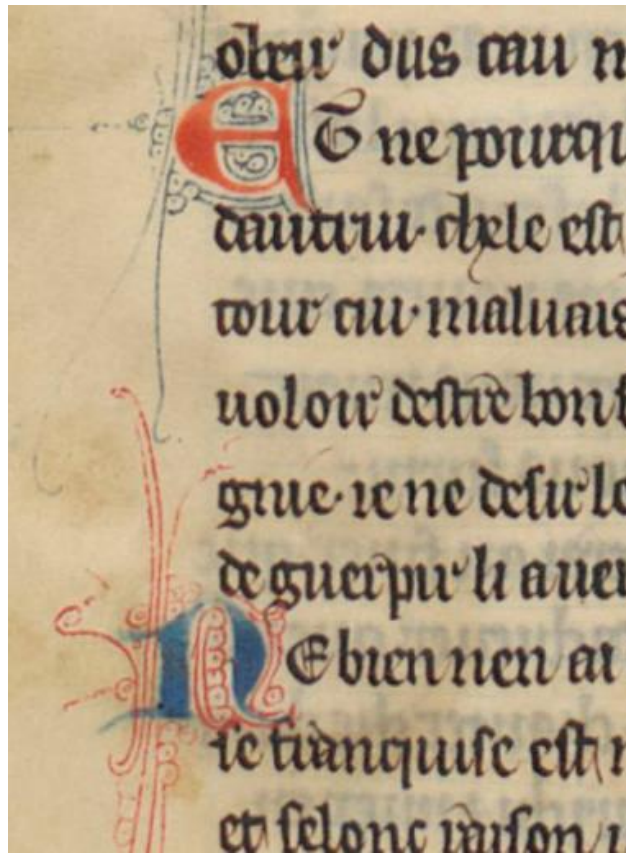 obeir dus cau n
Et ne pourqu
dautrui · chele est
tour cui · maluais
uoloir destre bon s
gnie · ie ne desir le
de guerpir li auer
NE bien nen ai
se franquise est n
et selonc raison